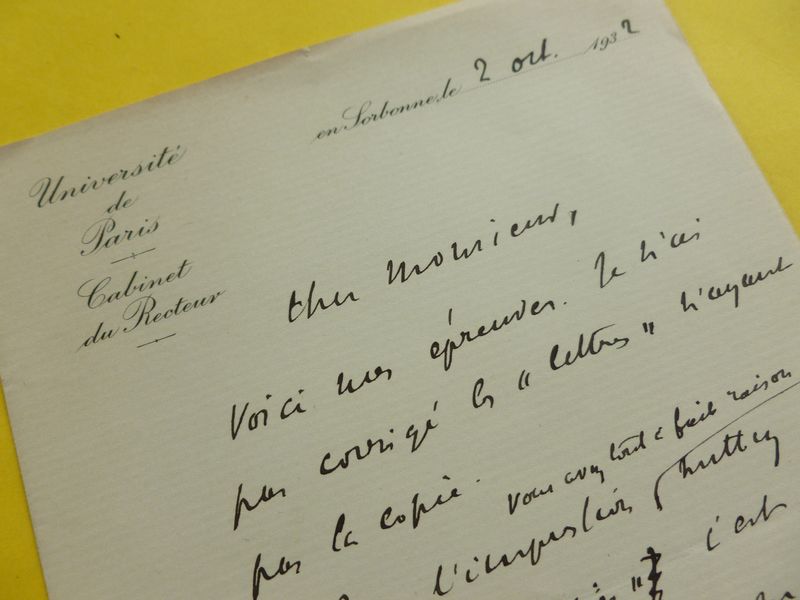 Université
de
Paris
Cabinet
du Recteur
en Sorbonne, le 2 oct. 1932
Cher Monsieur,
Voici mes épreuves. Je n'ai
pas corrigé les "lettres" n'ayant
pas la copie.
vous avez tout à fait raison
l'impression mettez
c'est